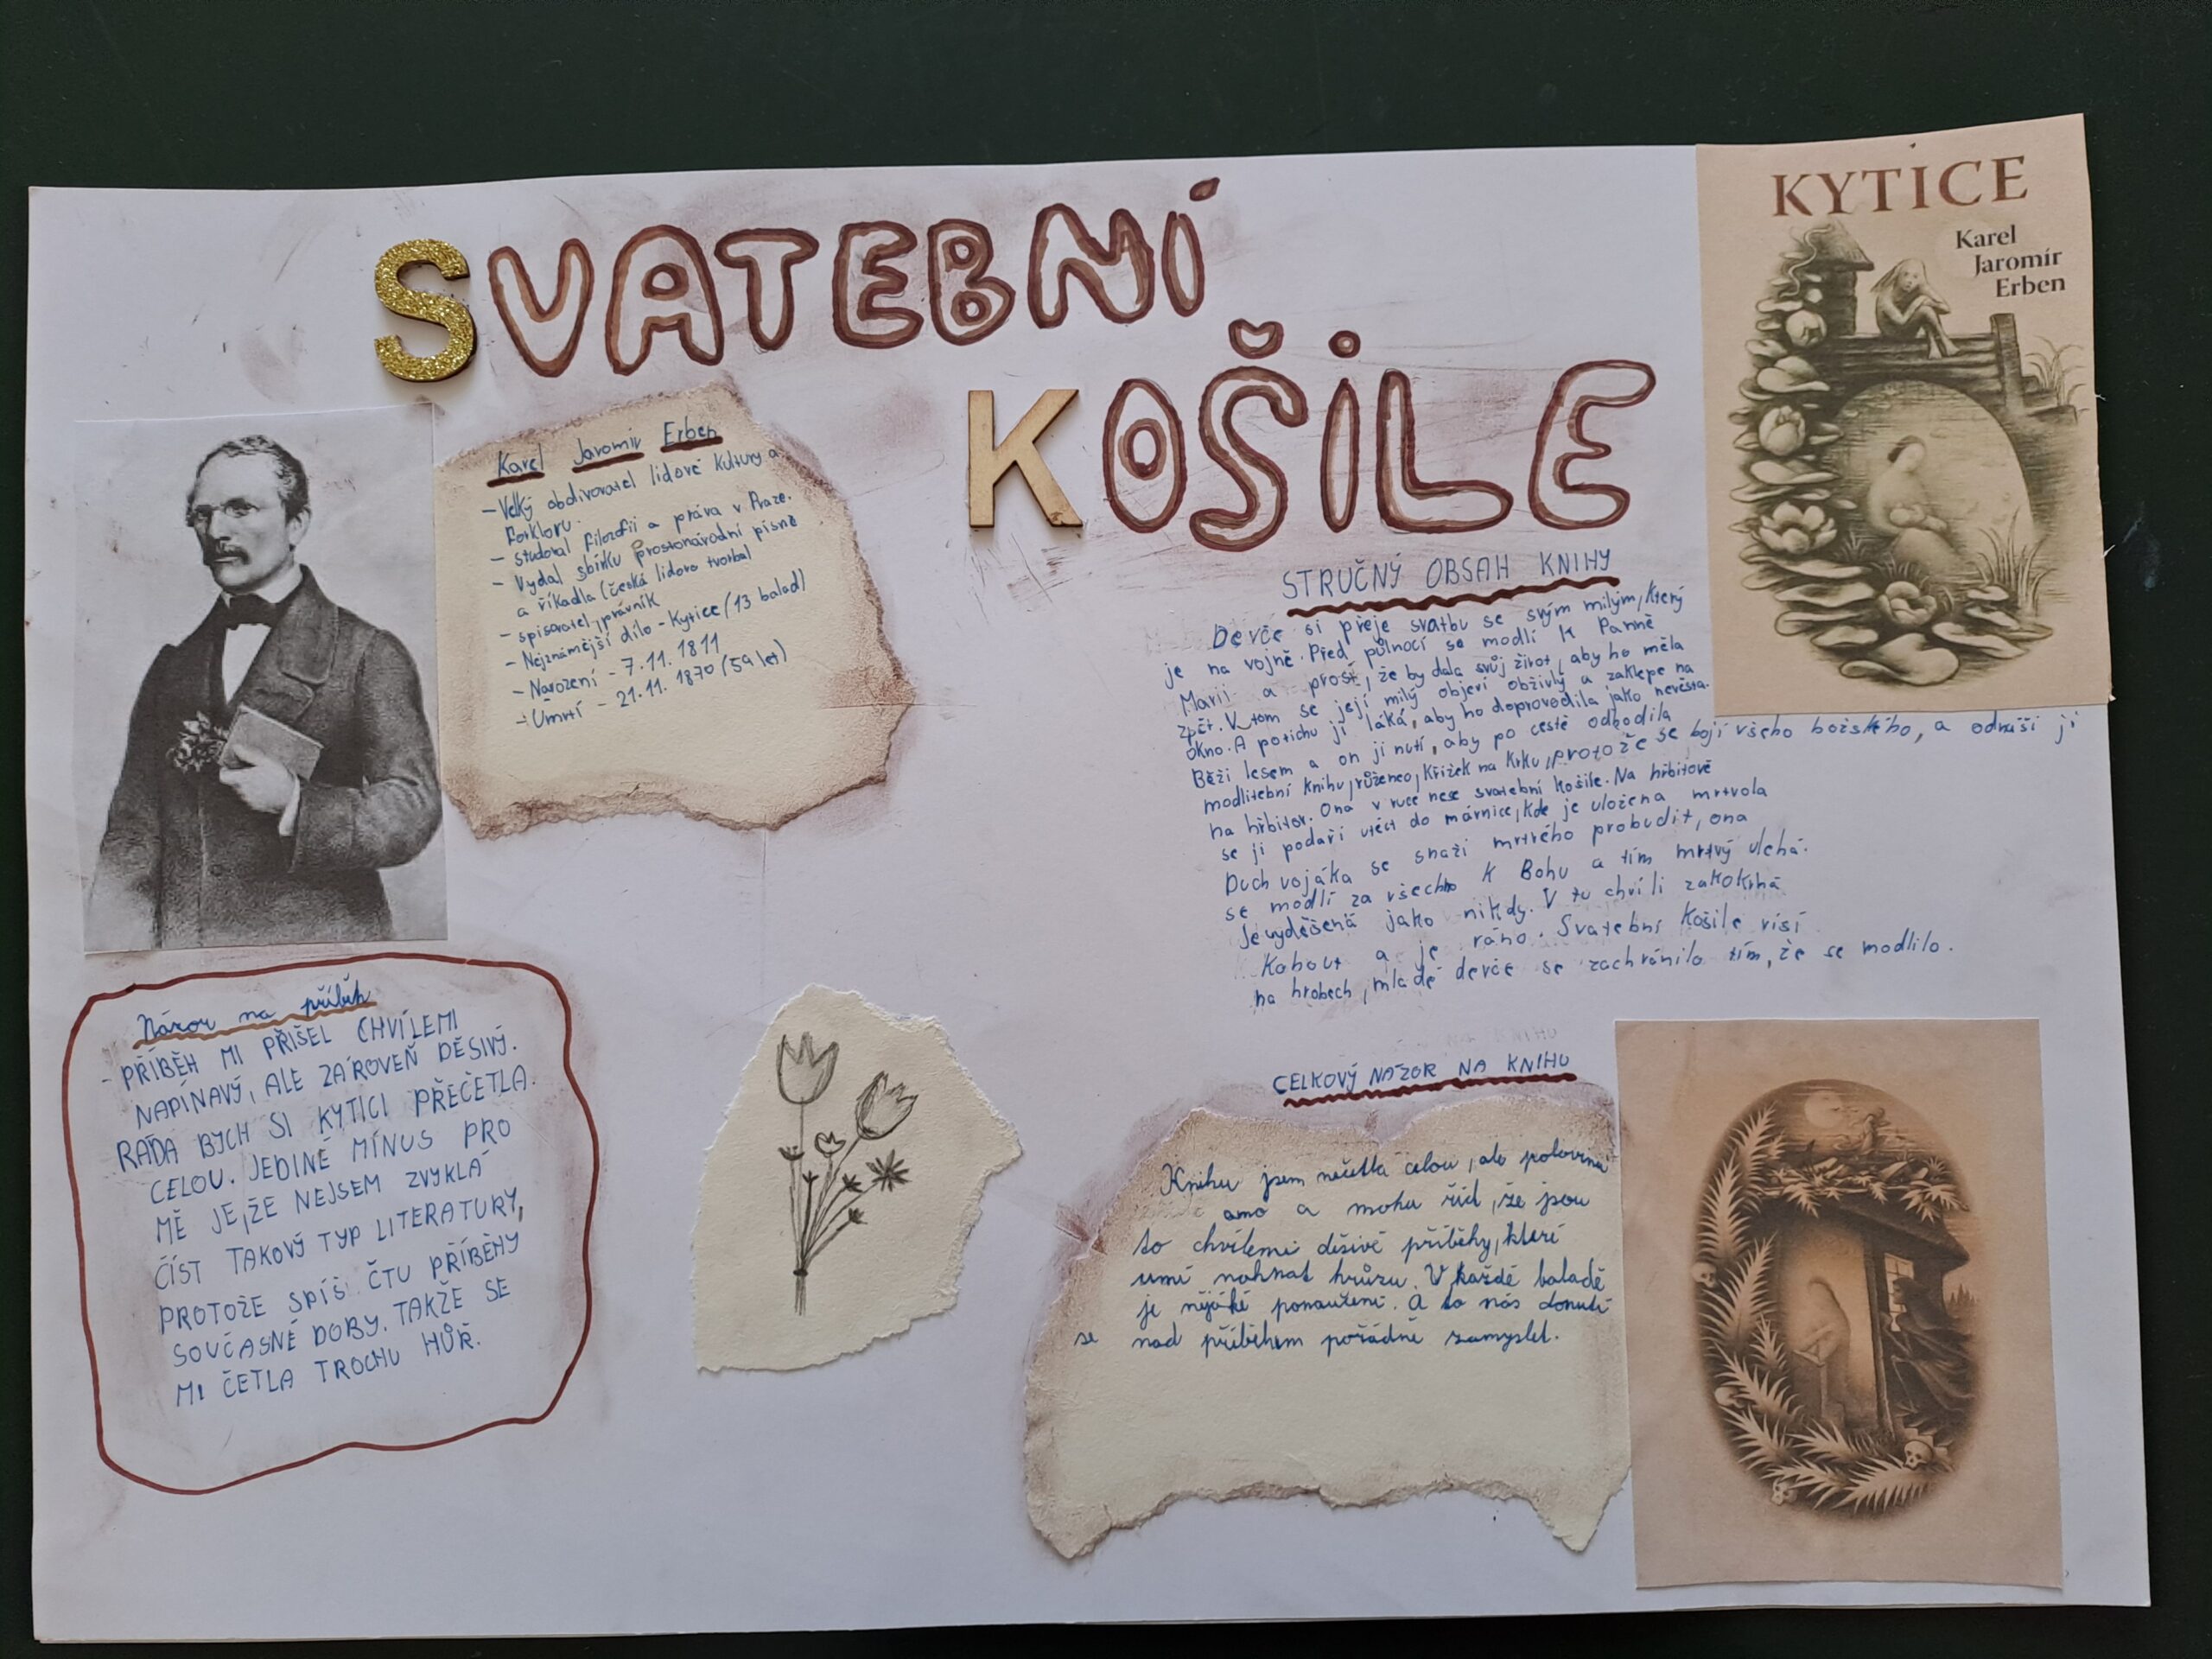 SVATEBNÍ
KOŠILE
KYTICE
Karel
Jaromír
Erben
Karel Jaromír Erben
- Velký obdivovatel lidové kultury a
forkloru.
- studoval filozofii a práva v Praze.
- Vydal sbírku prostonárodní písně
a říkadla (česká lidova tvorba)
- spisovatel, právník
- Nejznámější dílo - Kytice (13 balad)
- Narození - 7.11. 1811
- Úmrtí - 21.11. 1870 (59 let)
STRUČNÝ OBSAH KNIHY
Děvče si přeje svatbu se svým milým, který
je na vojně. Před půlnocí se modlí k Panně
Marii a prosí, že by dala svůj život, aby ho měla
zpět. V tom se její milý objeví obživlý a zaklepe na
okno. A potichu ji láká, aby ho doprovodila jako nevěsta.
Běží lesem a on ji nutí, aby po cestě odhodila
modlitební knihu, růženec, křížek na krku, protože se bojí všeho božského, a odnáší ji
na hřbitov. Ona v ruce nese svatební košile. Na hřbitově
se jí podaří utéct do márnice, kde je uložena mrtvola
Duch vojáka se snaží mrtvého probudit, ona
se modlí za všechno k Bohu a tím mrtvý ulehá.
Je vyděšená jako nikdy. V tu chvíli zakokrhá
Kohout a je ráno. Svatební košile visí
na hrobech, mladé děvče se zachránilo tím, že se modlilo.
Názor na příběh
- PŘÍBĚH MI PŘIŠEL CHVÍLEMI
NAPÍNAVÝ, ALE ZÁROVEŇ DĚSIVÝ.
RÁDA BYCH SI KYTICI PŘEČETLA
CELOU. JEDINÉ MÍNUS PRO
MĚ JE, ŽE NEJSEM ZVYKLÁ
ČÍST TAKOVÝ TYP LITERATURY,
PROTOŽE SPÍŠ ČTU PŘÍBĚHY
SOUČASNÉ DOBY. TAKŽE SE
MI ČETLA TROCHU HŮŘ.
CELKOVÝ NÁZOR NA KNIHU
Knihu jsem nečetla celou, ale polovinu
ano a mohu říct, že jsou
to chvílemi děsivé příběhy, kteří
umí nahnat hrůzu. V každé baladě
je nějaké ponaučení. A to nás donutí
se nad příběhem pořádně zamyslet.